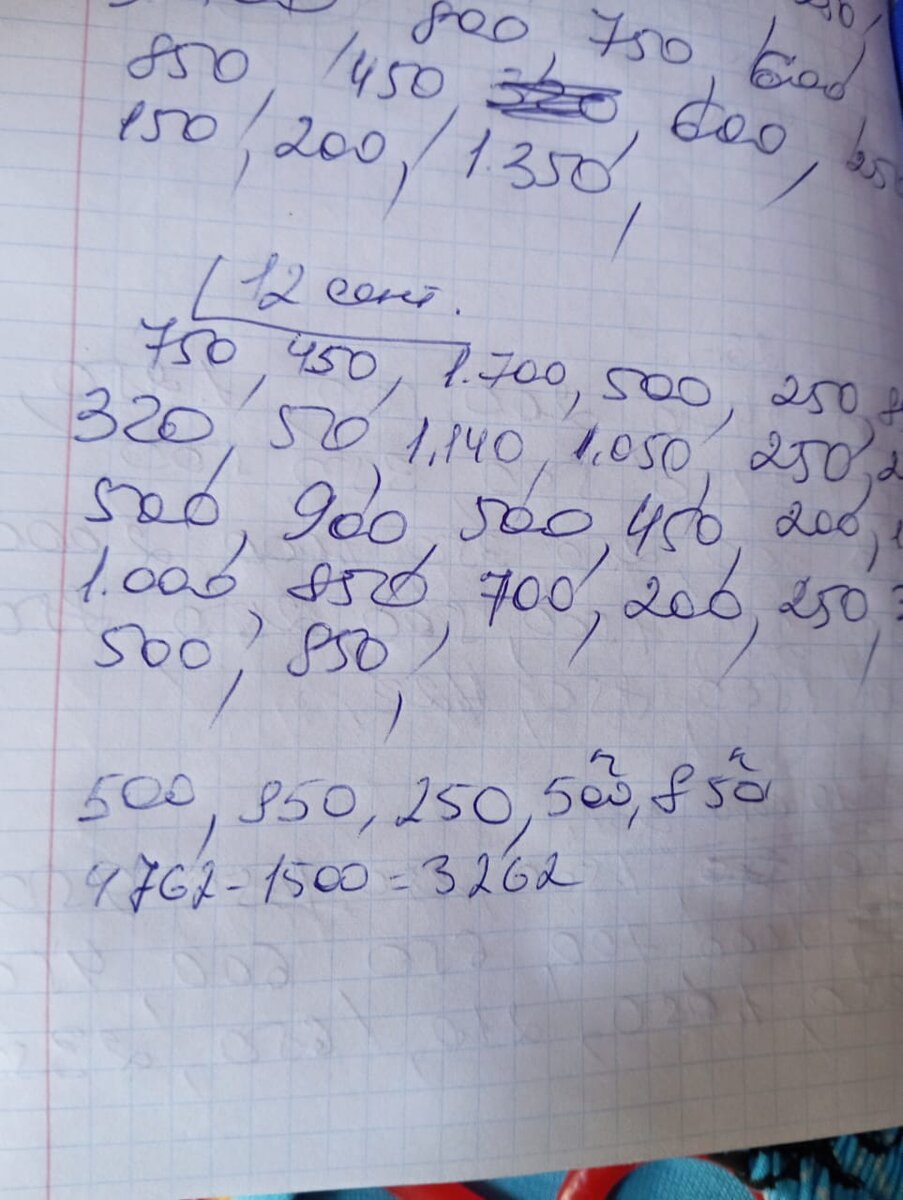 800, 750, 600
850, 450, 600,
150, 200, 1.350,
12 сент.
750, 450, 1.700, 500, 250,
320, 50, 1.140, 1.050, 250,
500, 900, 500, 450, 200,
1.000, 850, 700, 200, 250,
500, 850,
500, 850, 250, 500, 850
4762-1500=3262